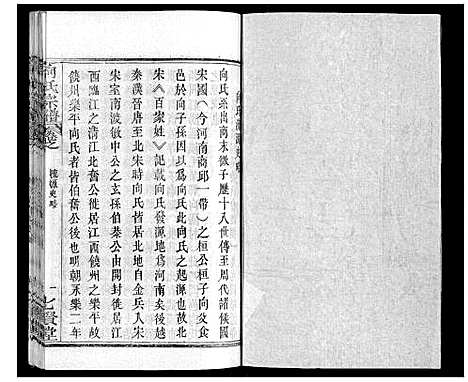 向氏系出商末微子歷十八世傳至周代諸候國
宋國《今河南商邱一帶》之桓公桓子向父食
邑於向子孫因以向為氏此向氏之起源也
宋《百家姓》記載向氏發源地為河南矣後越
秦漢晉唐至北宋時向氏皆居北地自金兵入宋
宋室南渡敏中公之玄孫伯奮公由開封徙居江
西臨江之清江北奮公徙居江西饒州之樂平故
饒州樂平向氏者皆伯奮公後也明朝永樂二年
向氏宗譜
卷之
源流
一
七賢堂